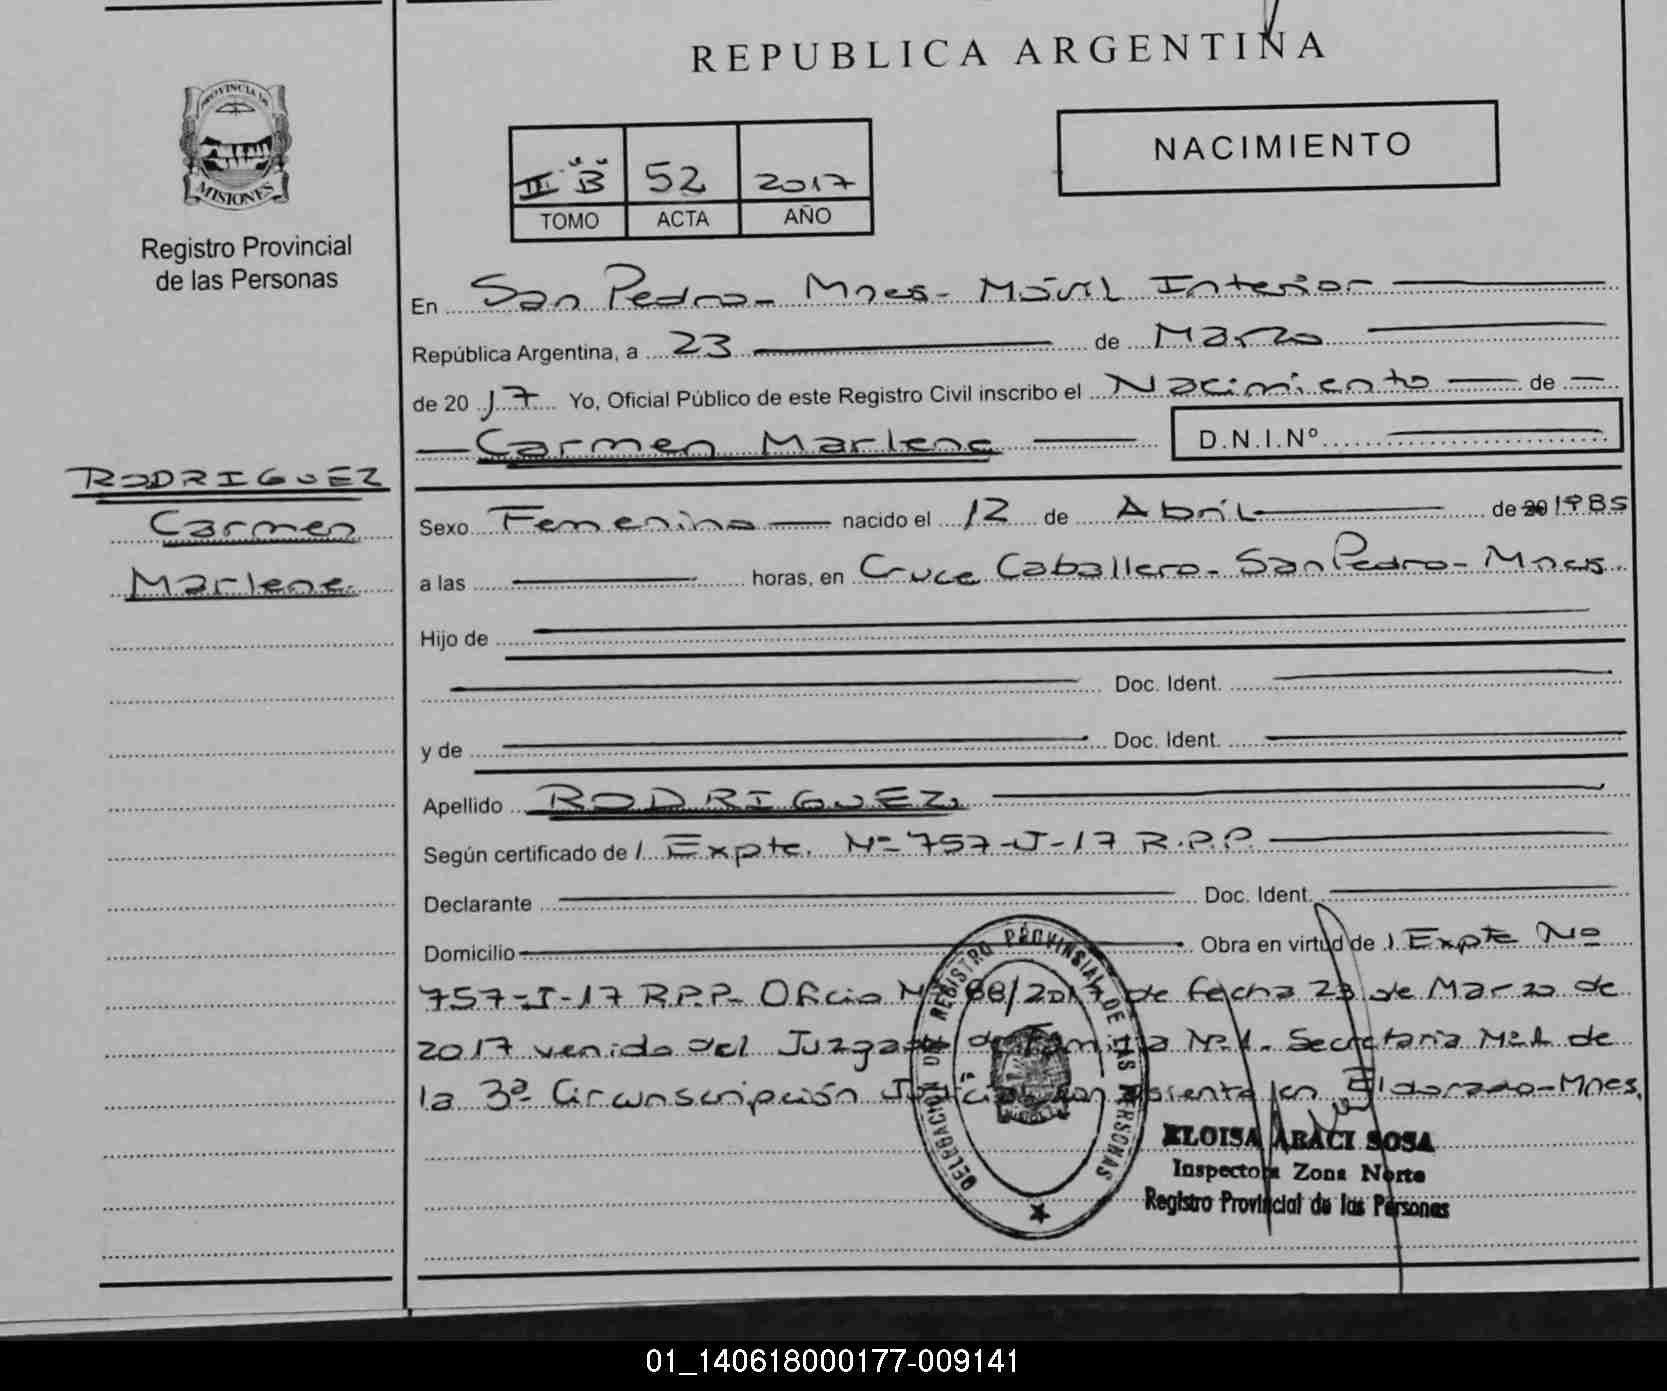 REPUBLICA ARGENTINA
PROVINCIA DE
MISIONES
Registro Provincial
de las Personas
NACIMIENTO
III "B" 52 2017
TOMO ACTA AÑO
En San Pedro - Mnes - Móvil Interior
República Argentina, a 23 de Marzo
de 2017 Yo, Oficial Público de este Registro Civil inscribo el Nacimiento de
Carmen Marlene D.N.I.Nº
RODRIGUEZ
Carmen
Marlene.
Sexo Femenino nacido el 12 de Abril de 20 1985
a las horas, en Cruce Caballero - San Pedro - Mnes.
Hijo de
Doc. Ident.
y de Doc. Ident.
Apellido RODRIGUEZ.
Según certificado de / Expte. Nº 757-J-17 R.P.P.
Declarante Doc. Ident.
Domicilio Obra en virtud de / Expte Nº
757-J-17 R.P.P. Oficio Nº 88/2017 de fecha 23 de Marzo de
2017 venido del Juzgado de Familia Nº 1. Secretaria Nº 1 de
la 3ª Circunscripción Judicial con asiento en Eldorado-Mnes.
DELEGACION DE REGISTRO PROVINSIAL DE LAS PERSONAS
ELOISA ARACI SOSA
Inspectora Zona Norte
Registro Provincial de las Personas
01_140618000177-009141